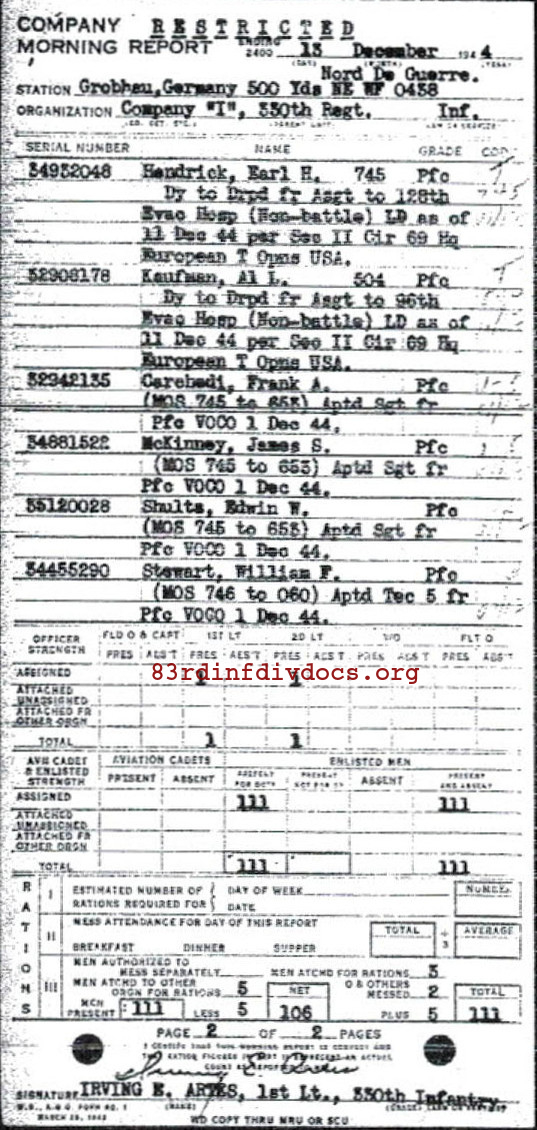 COMPANY RESTRICTED
MORNING REPORT ENDING 2400 13 December 1944
Nord De Guerre.
STATION Grobhau, Germany 500 Yds NE WF 0438
ORGANIZATION Company "I", 330th Regt. Inf.
SERIAL NUMBER NAME GRADE
34932048 Hendrick, Earl H. 745 Pfc
Dy to Drpd fr Asgt to 128th
Evac Hosp (Non-battle) LD as of
11 Dec 44 per Sec II Cir 69 Hq
European T Opns USA.
32908178 Kaufman, Al L. 504 Pfc
Dy to Drpd fr Asgt to 96th
Evac Hosp (Non-battle) LD as of
11 Dec 44 per Sec II Cir 69 Hq
European T Opns USA.
32942135 Frank A. Pfc
(MOS 745 to 653) Aptd Sgt fr
Pfc VOCO 1 Dec 44.
34881522 McKinney, James S. Pfc
(MOS 745 to 653) Aptd Sgt fr
Pfc VOCO 1 Dec 44.
35120028 Shults, Edwin W. Pfc
(MOS 745 to 653) Aptd Sgt fr
Pfc VOCO 1 Dec 44.
34455290 Stewart, William F. Pfc
(MOS 746 to 060) Aptd Tec 5 fr
Pfc VOCO 1 Dec 44.
OFFICER STRENGTH FLD O & CAPT 1ST LT 2D LT W/O FLT O
PRES ABS'T PRES ABS'T PRES ABS'T PRES ABS'T PRES ABS'T
ASSIGNED 1 1
83rdinfdivdocs.org
ATTACHED UNASSIGNED
ATTACHED FR OTHER ORGN
TOTAL 1 1
AVN CADET & ENLISTED STRENGTH AVIATION CADETS ENLISTED MEN
PRESENT ABSENT PRESENT FOR DUTY PRESENT NOT FOR DY ABSENT PRESENT AND ABSENT
ASSIGNED 111 111
ATTACHED UNASSIGNED
ATTACHED FR OTHER ORGN
TOTAL 111 111
RATIONS
I ESTIMATED NUMBER OF RATIONS REQUIRED FOR DAY OF WEEK DATE NUMBER
II MESS ATTENDANCE FOR DAY OF THIS REPORT TOTAL ÷ 3 AVERAGE
BREAKFAST DINNER SUPPER
III MEN AUTHORIZED TO MESS SEPARATELY MEN ATCHD FOR RATIONS 3
MEN ATCHD TO OTHER ORGN FOR RATIONS 5 NET O & OTHERS MESSED 2 TOTAL
MEN PRESENT 111 LESS 5 106 PLUS 5 111
PAGE 2 OF 2 PAGES
I CERTIFY THAT THIS MORNING REPORT IS CORRECT AND
THE RATION FIGURES IN PART III REPRESENT AN ACTUAL
COUNT
SIGNATURE IRVING E. ARTES, 1st Lt., 330th Infantry
W.D., A.G.O. FORM NO. 1 (NAME)
MARCH 1943 WD COPY THRU MRU OR SCU